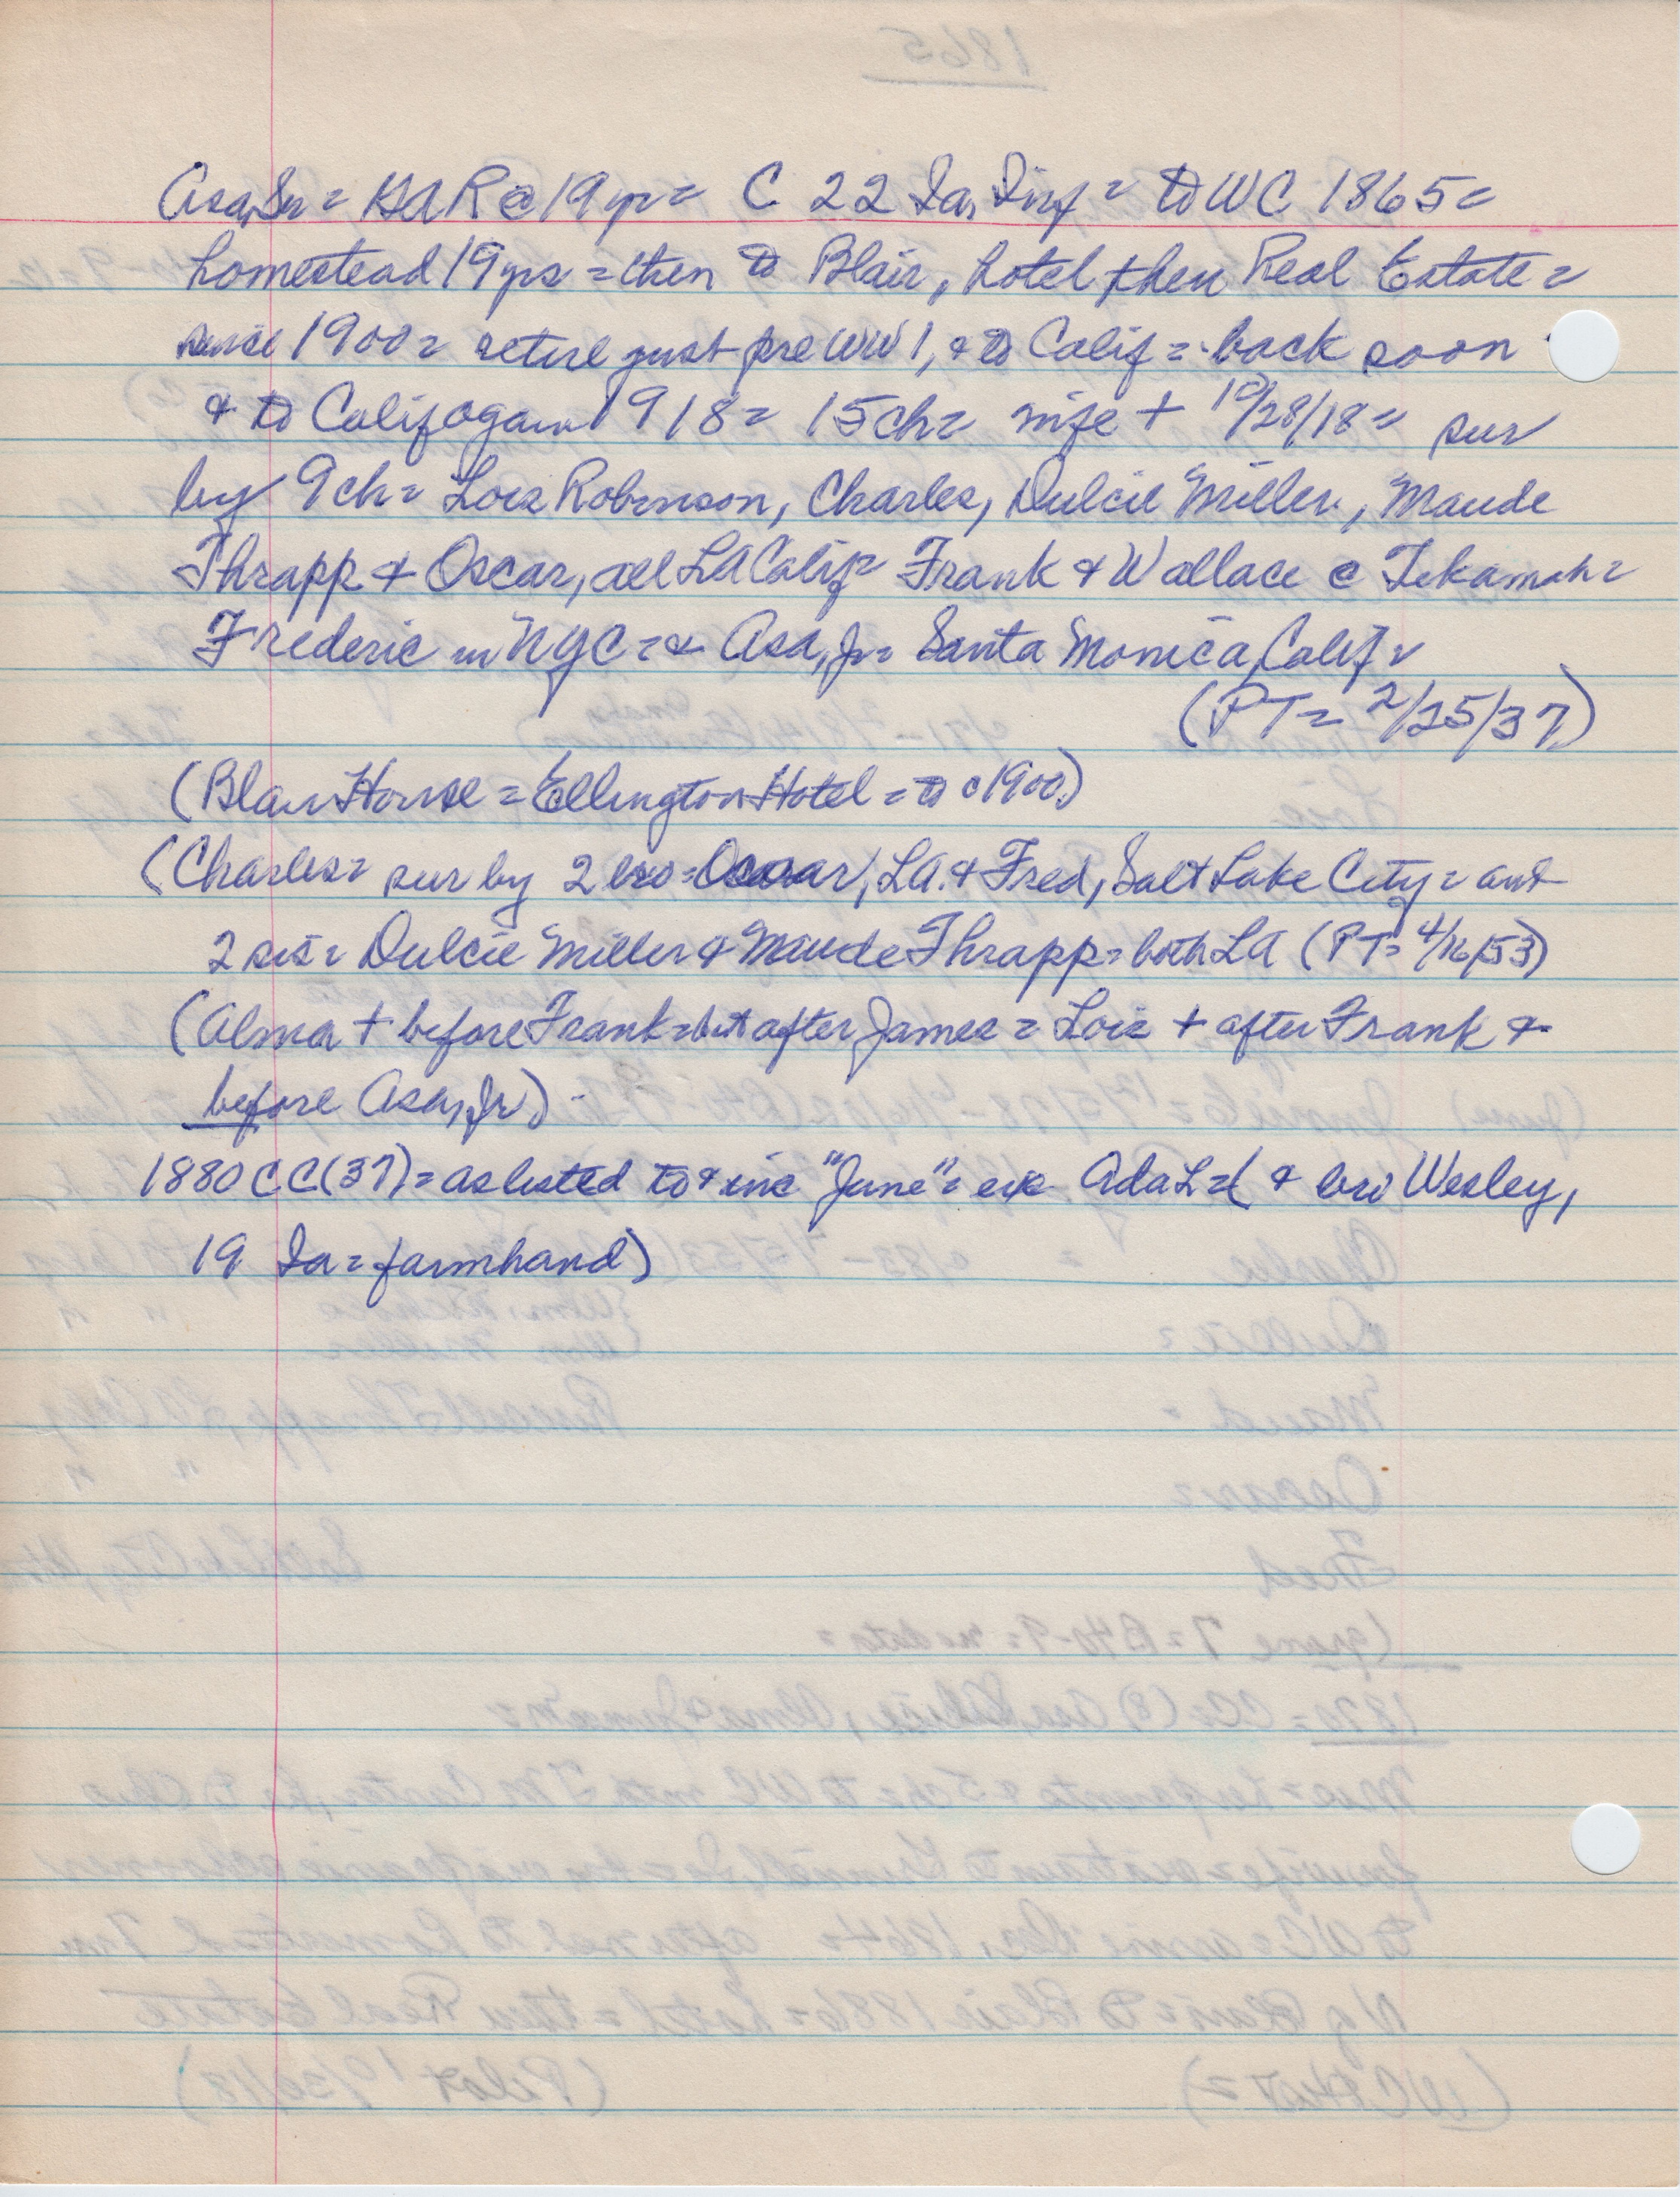 Asa, Sr = GAR @ 19 yr = C 22 Ia, Inf = to WC 1865 =
homestead 19 yrs = then to Blair, hotel then Real Estate =
since 1900 = retire just pre WW 1, & to Calif = back soon
& to Calif again 1918 = 15 ch = wife + 10/28/18 = sur
by 9 ch = Lois Robinson, Charles, Dulcie Miller, Maude
Thrapp & Oscar, all LA Calif = Frank & Wallace @ Tekamah =
Frederic in NYC = & Asa, Jr = Santa Monica, Calif =
(PT = 2/25/37)
(Blair House = Ellington Hotel = to c 1900)
(Charles = sur by 2 bro = Oscar, LA. & Fred, Salt Lake City = and
2 sis = Dulcie Miller & Maude Thrapp = both LA (PT = 4/16/53)
(Alma + before Frank = but after James = Lois + after Frank &
before Asa, Jr)
1880 CC (37) = as listed to & inc "June" = exc Ada L = ( & bro Wesley,
19 Ia = farmhand)